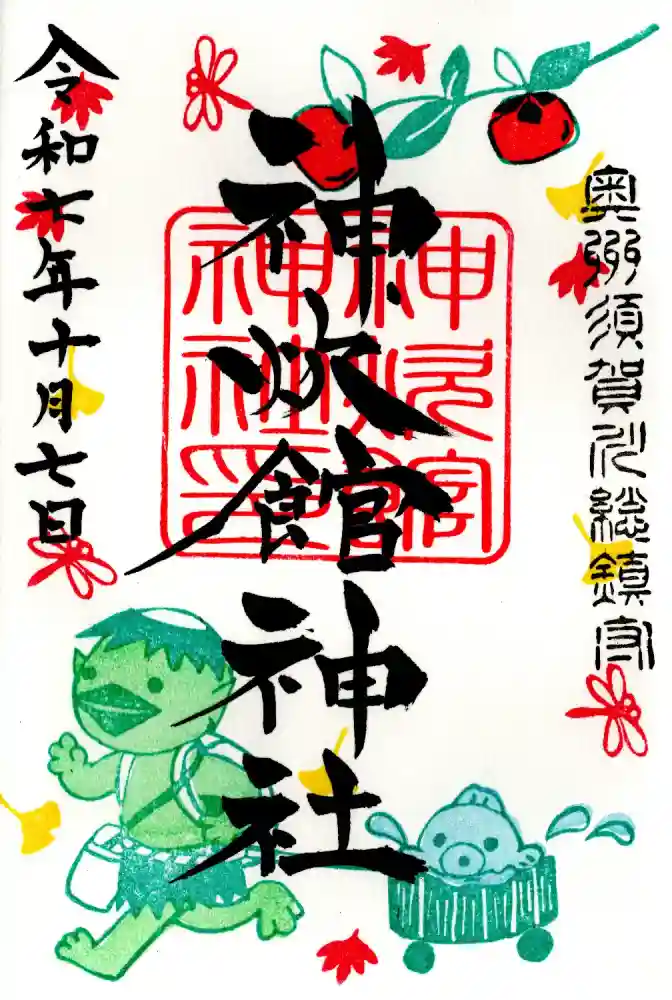 奥州須賀川総鎮守
神炊館神社
神炊館
神社印
令和七年十月七日